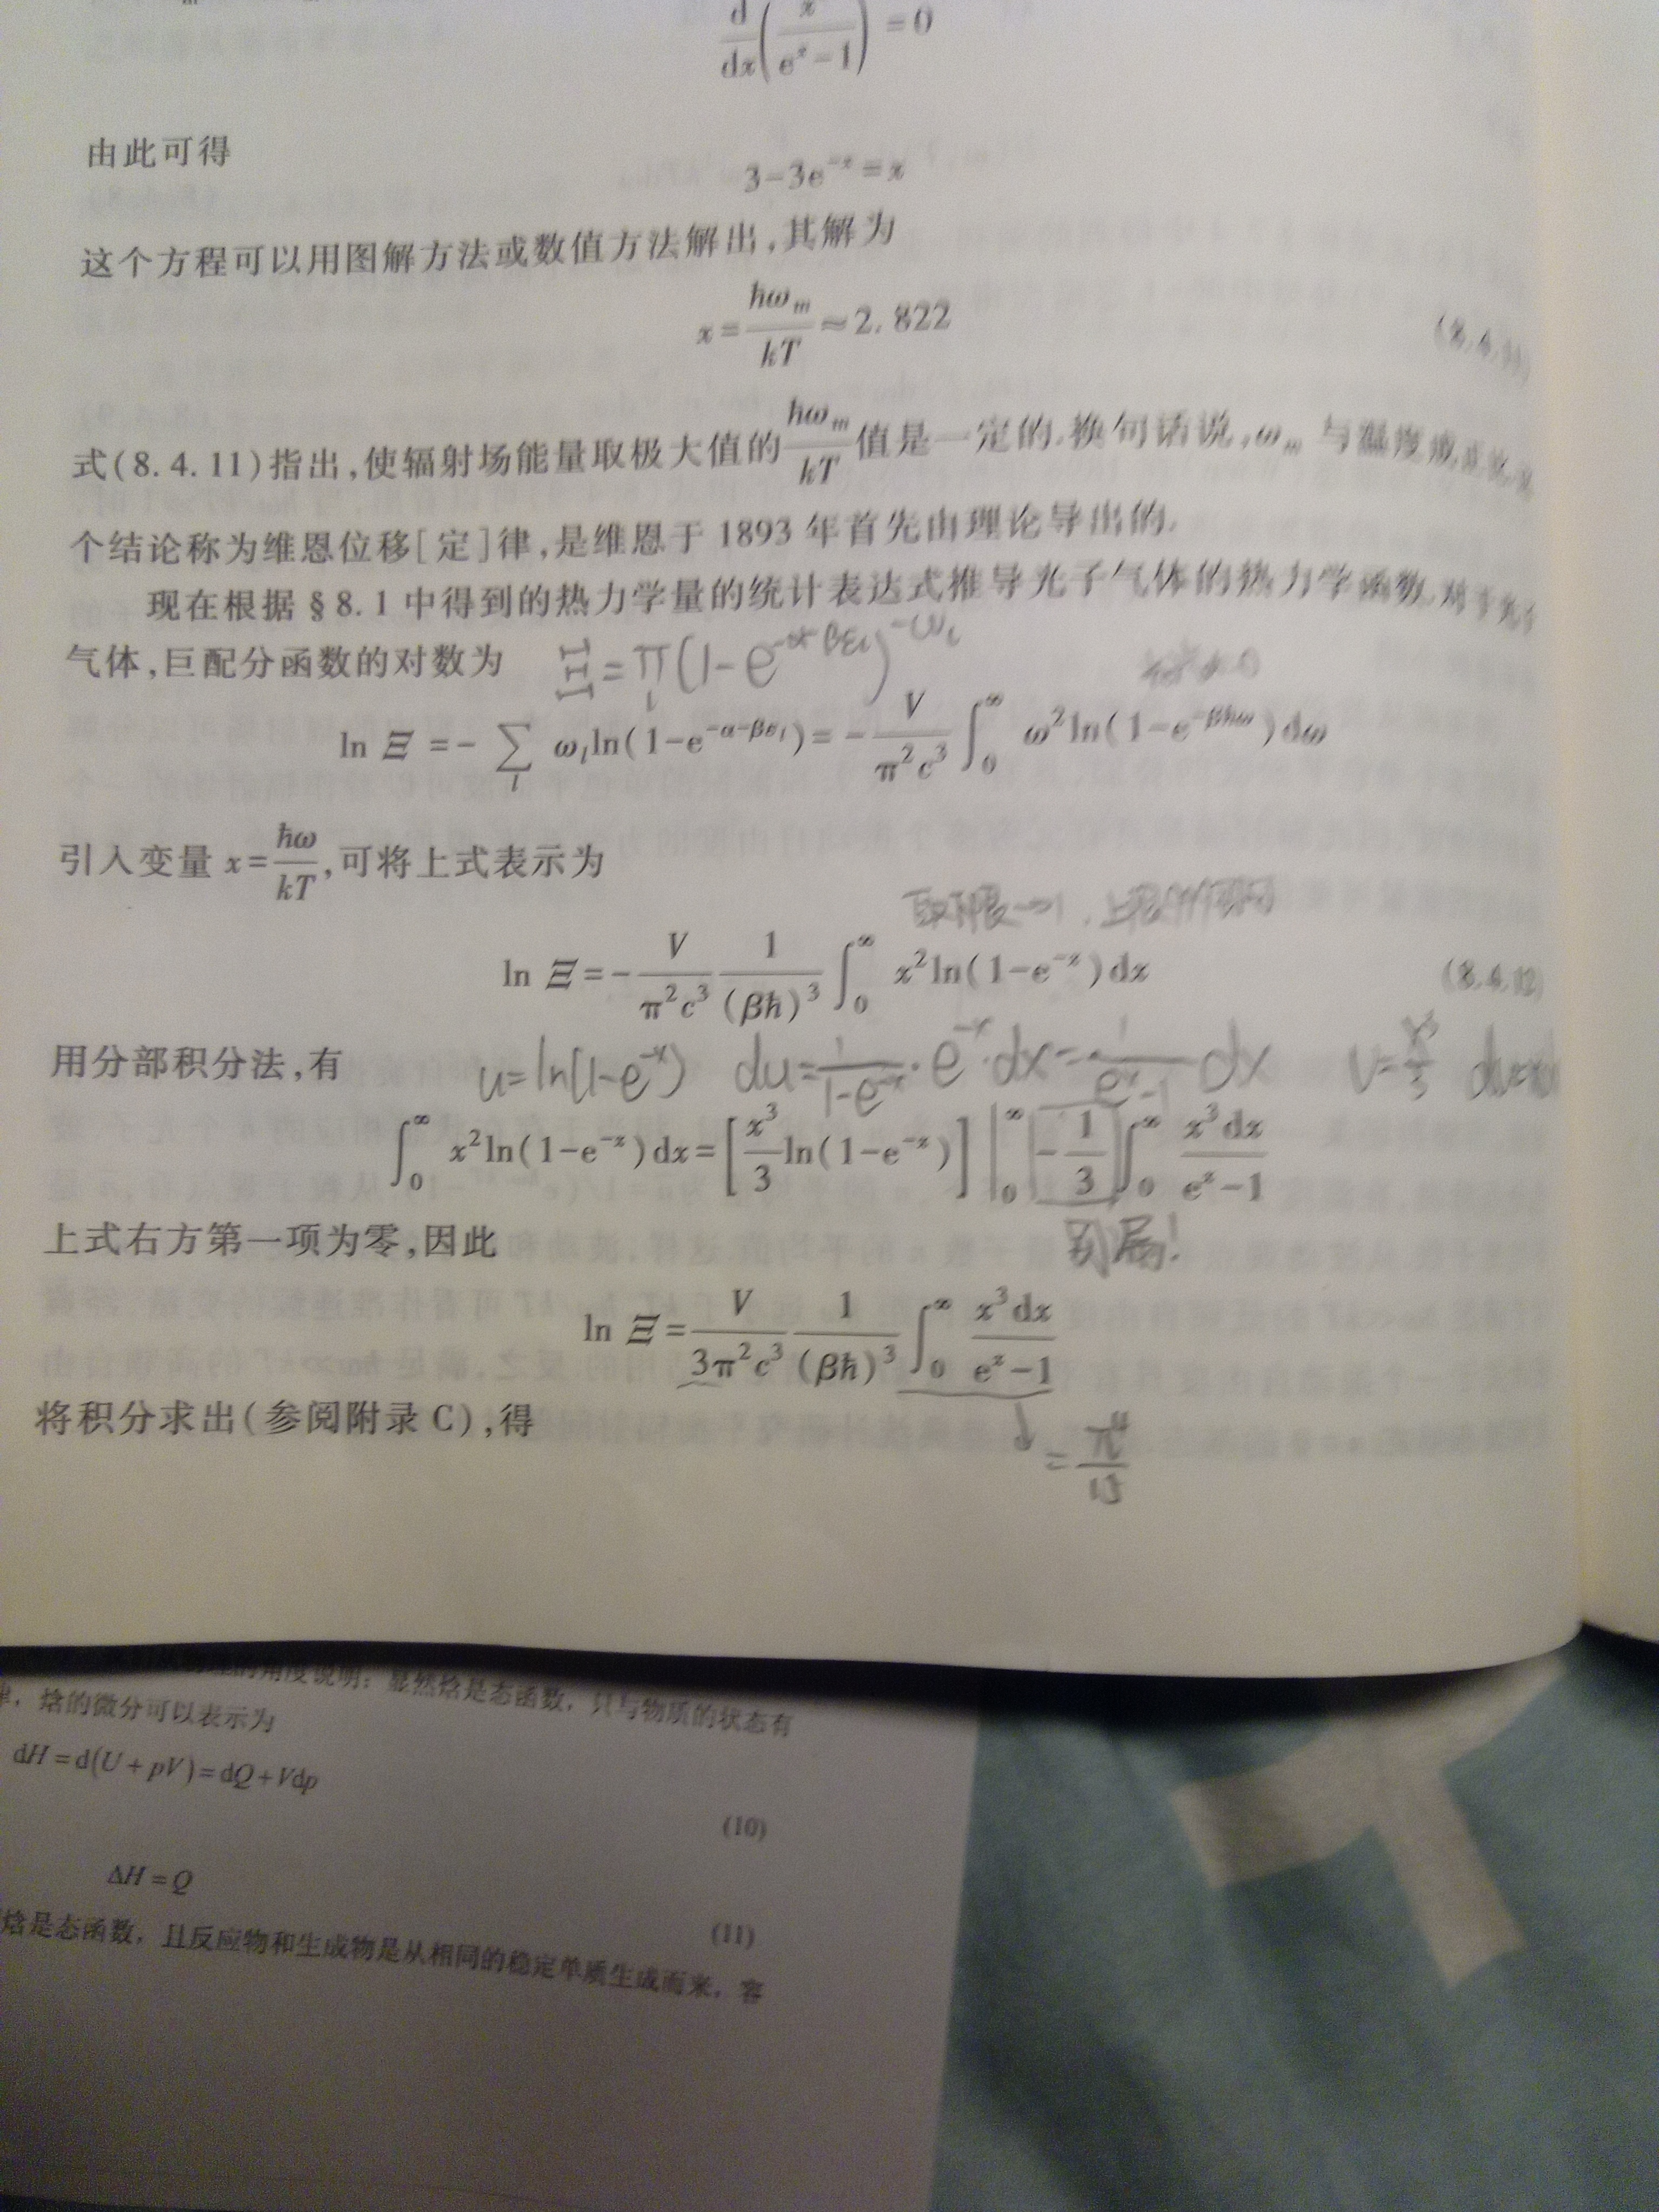 d/dx(x/(e^x-1))=0
由此可得
3-3e^{-x}=x
这个方程可以用图解方法或数值方法解出,其解为
x=ħω_m/kT≈2.822
(8.4.11)
式(8.4.11)指出,使辐射场能量取极大值的ħω_m/kT值是一定的.换句话说,ω_m 与温度成正比.
个结论称为维恩位移[定]律,是维恩于 1893 年首先由理论导出的.
现在根据 §8.1 中得到的热力学量的统计表达式推导光子气体的热力学函数.对于光子
气体,巨配分函数的对数为 Ξ=∏_l(1-e^{-α-βε_l})^{-ω_l}
ln Ξ=-∑_l ω_l ln(1-e^{-α-βε_l})=-V/(π²c³)∫_0^∞ ω²ln(1-e^{-βħω})dω
引入变量 x=ħω/kT,可将上式表示为
取极限→1.
ln Ξ=-V/(π²c³) 1/(βħ)³ ∫_0^∞ x²ln(1-e^{-x})dx (8.4.12)
用分部积分法,有 u=ln(1-e^{-x}) du=1/(1-e^{-x})·e^{-x}·dx=1/(e^x-1)dx v=x³/3
∫_0^∞ x²ln(1-e^{-x})dx=[x³/3 ln(1-e^{-x})]|_0^∞-1/3∫_0^∞ x³dx/(e^x-1)
上式右方第一项为零,因此 别漏!
ln Ξ=V/(3π²c³) 1/(βħ)³ ∫_0^∞ x³dx/(e^x-1)
将积分求出(参阅附录 C),得
=π⁴/15
的角度说明：显然焓是态函数，只与物质的状态有
律，焓的微分可以表示为
dH=d(U+pV)=dQ+Vdp
(10)
ΔH=Q
(11)
焓是态函数，且反应物和生成物是从相同的稳定单质生成而来，容